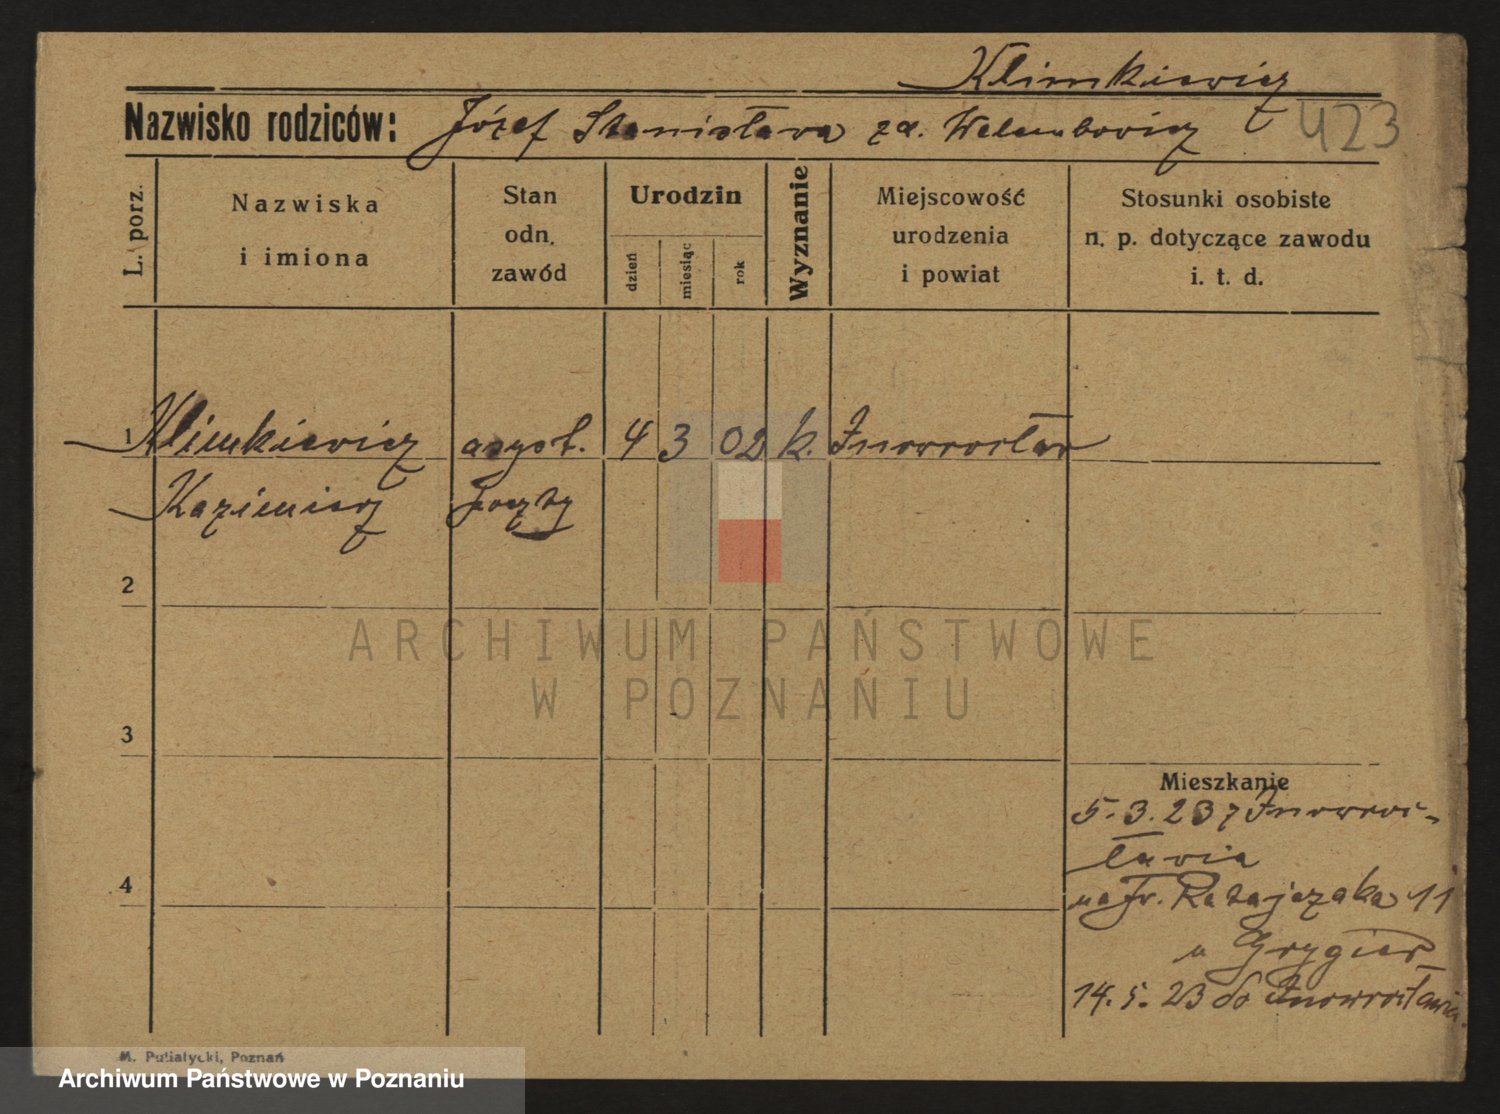 Klimkiewicz
Nazwisko rodziców: Józef Stanisława za. 423
L. porz.
Nazwiska
i imiona
Stan
odn.
zawód
Urodzin
dzień
miesiąc
rok
Wyznanie
Miejscowość
urodzenia
i powiat
Stosunki osobiste
n. p. dotyczące zawodu
i. t. d.
1 Klimkiewicz asyst. 4 3 02 k. Inowrocław
Kazimierz poczty
2
3
4
Mieszkanie
5.3.23 z Inowroc-
ławia
na Fr. Ratajczaka 11
u Grygier
14.5.23 do Inowrocławia.
ARCHIWUM PAŃSTWOWE
W POZNANIU
M. Putiatycki, Poznań
Archiwum Państwowe w Poznaniu